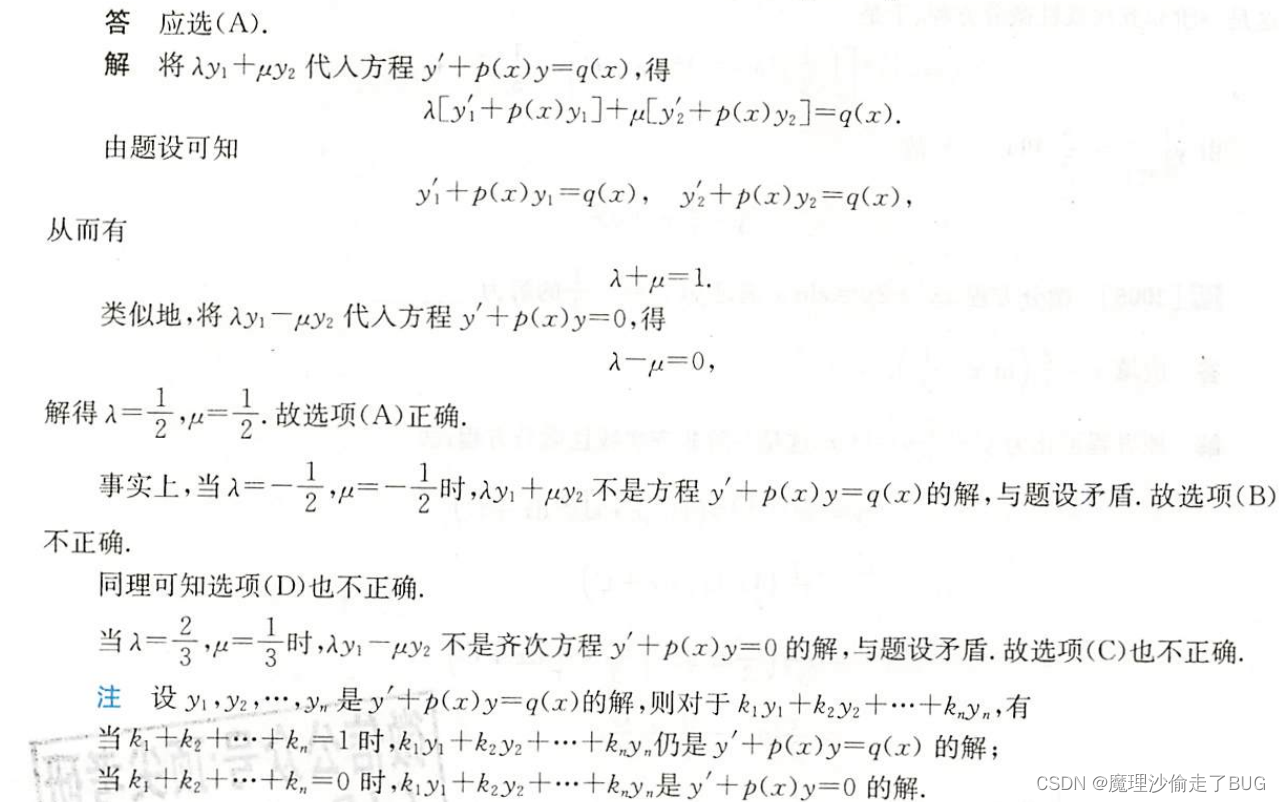 答 应选(A).
解 将 λy₁+μy₂ 代入方程 y′+p(x)y=q(x),得
λ[y₁′+p(x)y₁]+μ[y₂′+p(x)y₂]=q(x).
由题设可知
y₁′+p(x)y₁=q(x), y₂′+p(x)y₂=q(x),
从而有
λ+μ=1.
类似地,将 λy₁-μy₂ 代入方程 y′+p(x)y=0,得
λ-μ=0,
解得 λ=1/2,μ=1/2.故选项(A)正确.
事实上,当 λ=-1/2,μ=-1/2时,λy₁+μy₂ 不是方程 y′+p(x)y=q(x)的解,与题设矛盾.故选项(B)
不正确.
同理可知选项(D)也不正确.
当 λ=2/3,μ=1/3时,λy₁-μy₂ 不是齐次方程 y′+p(x)y=0 的解,与题设矛盾.故选项(C)也不正确.
注 设 y₁,y₂,…,yₙ 是 y′+p(x)y=q(x)的解,则对于 k₁y₁+k₂y₂+…+kₙyₙ,有
当 k₁+k₂+…+kₙ=1 时,k₁y₁+k₂y₂+…+kₙyₙ仍是 y′+p(x)y=q(x) 的解;
当 k₁+k₂+…+kₙ=0 时,k₁y₁+k₂y₂+…+kₙyₙ是 y′+p(x)y=0 的解.
CSDN @魔理沙偷走了BUG